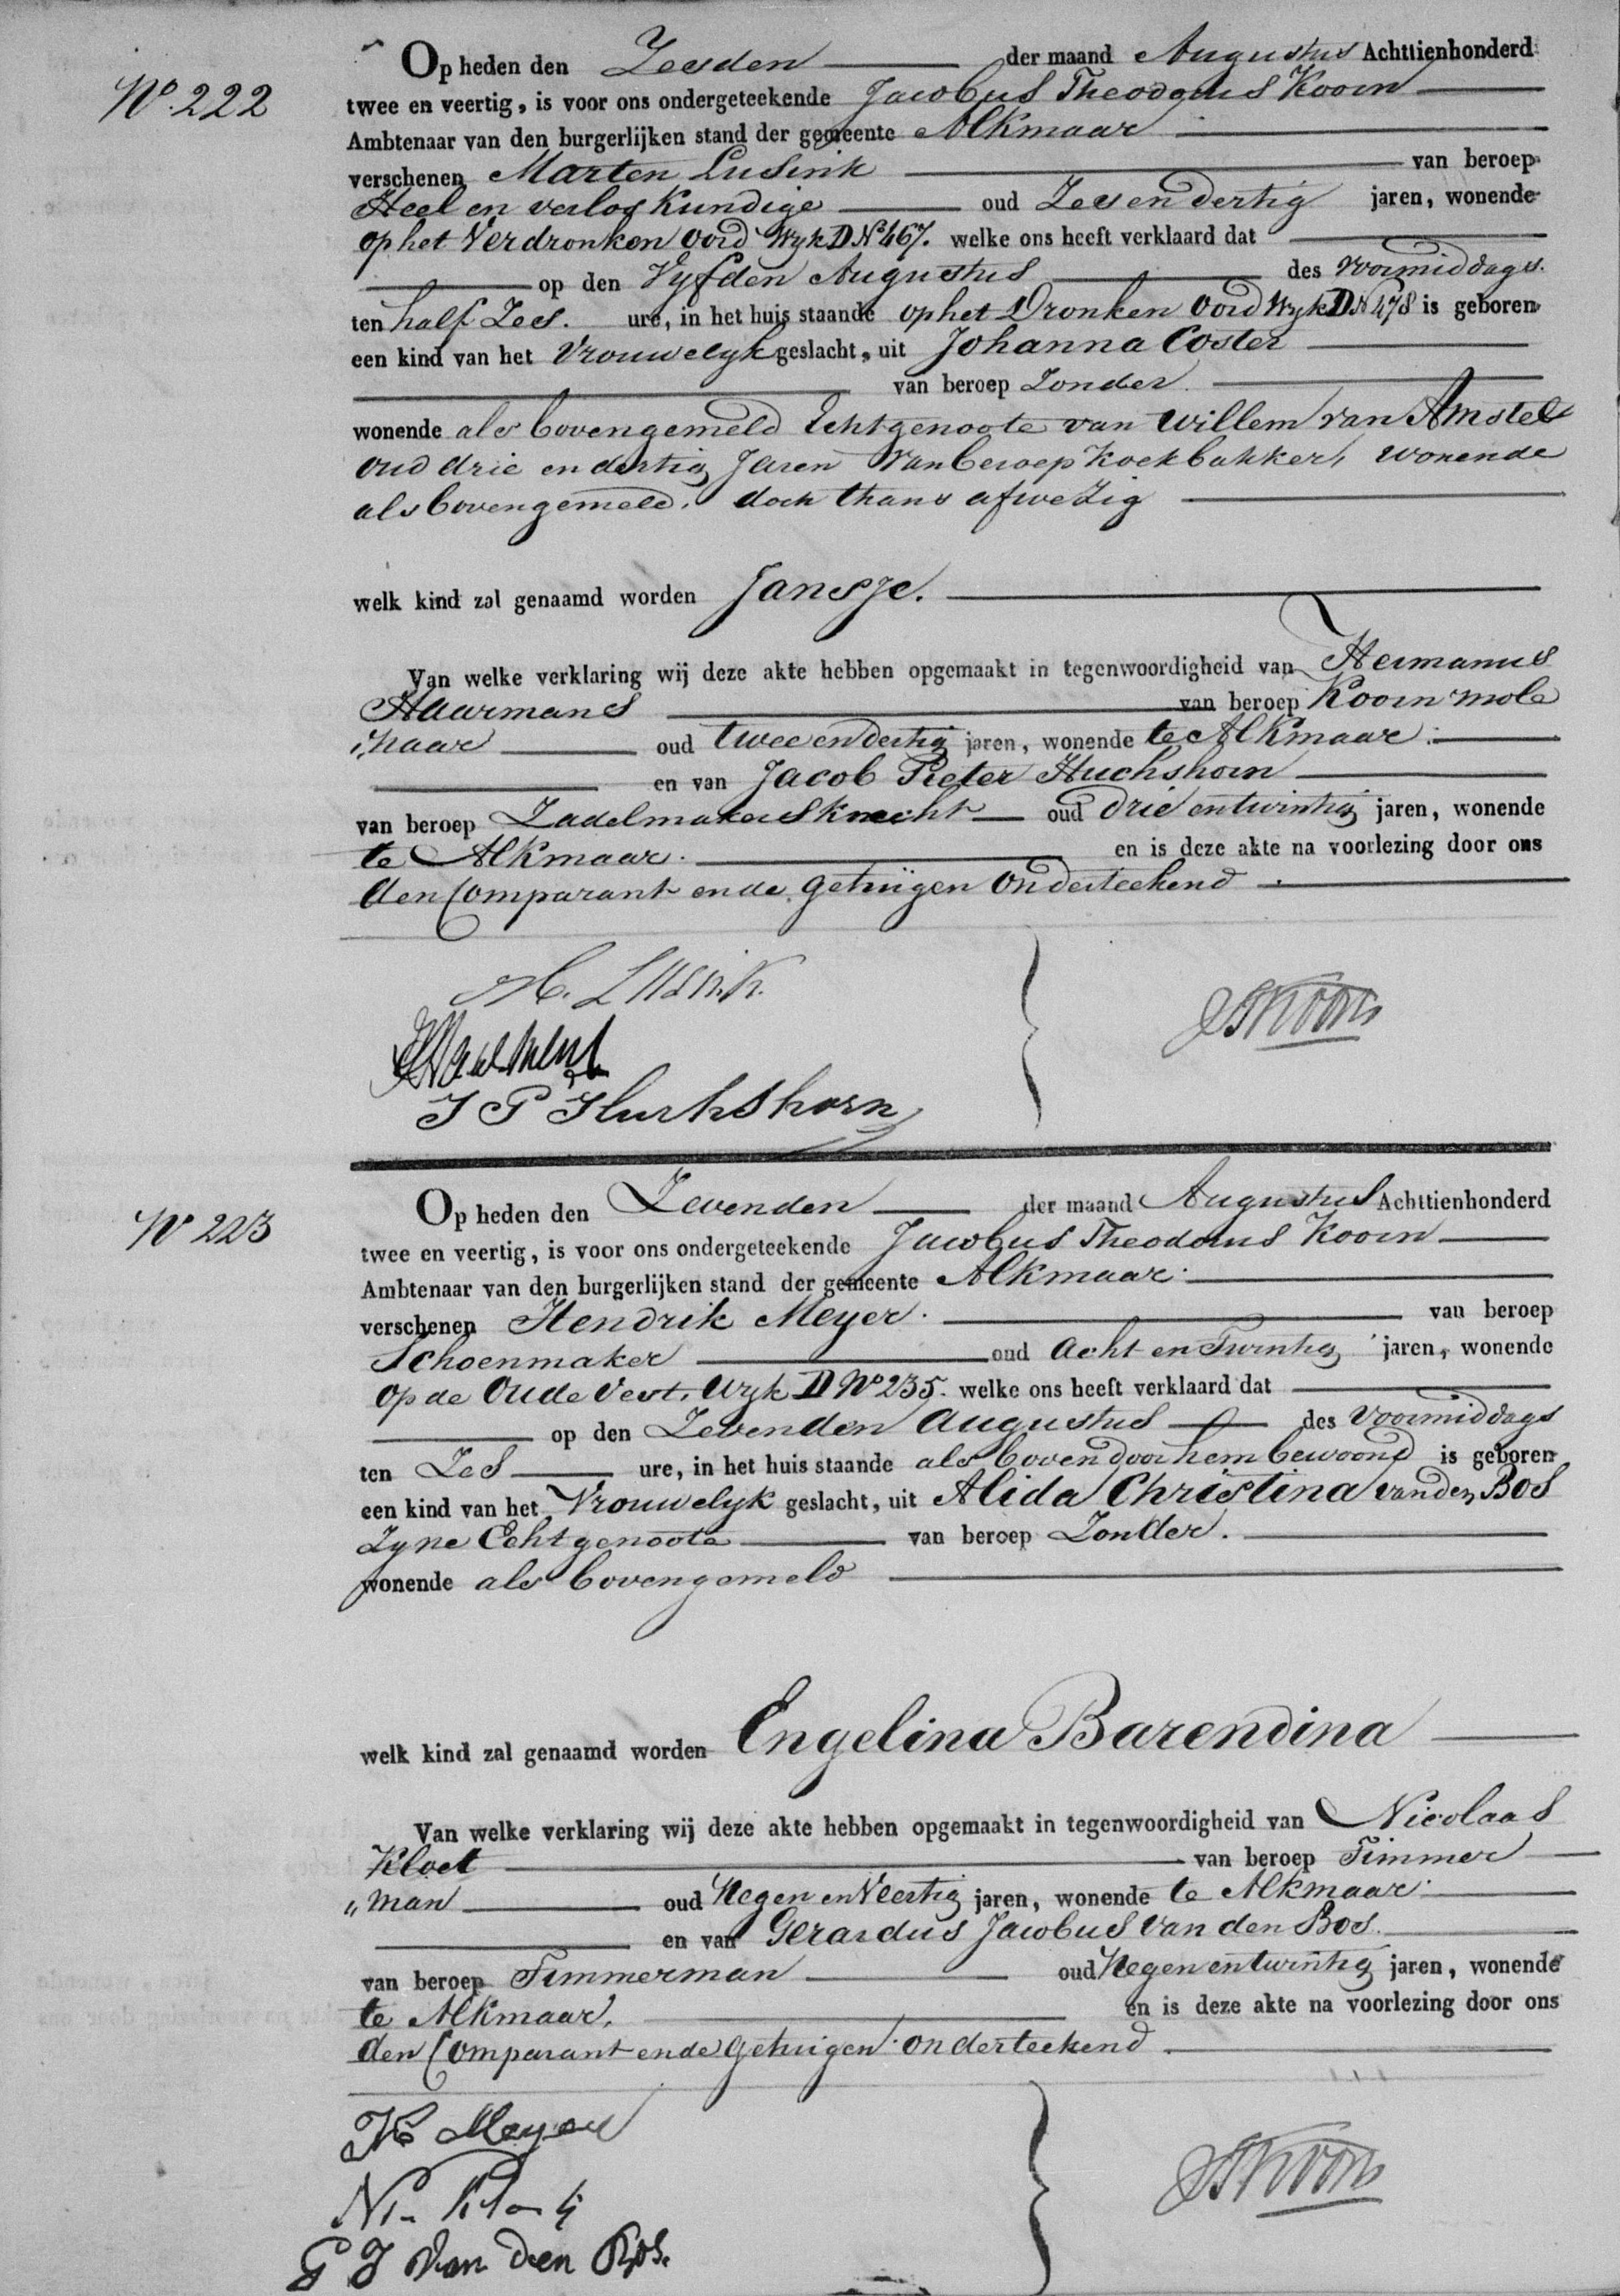 No. 222
Op heden den Zesden der maand Augustus Achttienhonderd
twee en veertig, is voor ons ondergeteekende Jacobus Theodorus Koorn
Ambtenaar van den burgerlijken stand der gemeente Alkmaar
verschenen Marten Lusink van beroep
Heel en verloskundige oud Zes en dertig jaren, wonende
op het Verdronken Oord Wyk D No 467. welke ons heeft verklaard dat
op den Vyfden Augustus des voormiddags.
ten half Zes. ure, in het huis staande op het Dronken Oord Wyk D No 478 is geboren
een kind van het Vrouwelyk geslacht, uit Johanna Coster
van beroep Zonder.
wonende als bovengemeld Echtgenoote van Willem van Amstel
oud drie en dertig Jaren van beroep Koekbakker, wonende
als bovengemeld. doch thans afwezig
welk kind zal genaamd worden Jansje.
Van welke verklaring wij deze akte hebben opgemaakt in tegenwoordigheid van Hermanus
Haarmans van beroep Koorn mole
naar oud twee en dertig jaren, wonende te Alkmaar.
en van Jacob Pieter Huchshorn
van beroep Zadelmakersknecht oud drie en twintig jaren, wonende
te Alkmaar. en is deze akte na voorlezing door ons
den Comparant en de getuigen Onderteekend.
M. Lusink.
J P Huchshorn
JTKoorn
No 223
Op heden den Zevenden der maand Augustus Achttienhonderd
twee en veertig, is voor ons ondergeteekende Jacobus Theodorus Koorn
Ambtenaar van den burgerlijken stand der gemeente Alkmaar.
verschenen Hendrik Meyer. van beroep
Schoenmaker oud Acht en Twintig jaren, wonende
op de Oude Vest, Wyk D No 235. welke ons heeft verklaard dat
op den Zevenden Augustus des Voormiddags
ten Zes ure, in het huis staande als boven door hem bewoond is geboren
een kind van het Vrouwelyk geslacht, uit Alida Christina van den Bos
Zyne Echtgenoote van beroep Zonder.
wonende als bovengemeld
welk kind zal genaamd worden Engelina Barendina
Van welke verklaring wij deze akte hebben opgemaakt in tegenwoordigheid van Nicolaas
Kloet van beroep Timmer
"man oud Negen en Veertig jaren, wonende te Alkmaar.
en van Gerardus Jacobus van den Bos.
van beroep Timmerman oud Negen en twintig jaren, wonende
te Alkmaar. en is deze akte na voorlezing door ons
den Comparant en de getuigen onderteekend.
H Meyer
G J Van den Bos.
JTKoorn